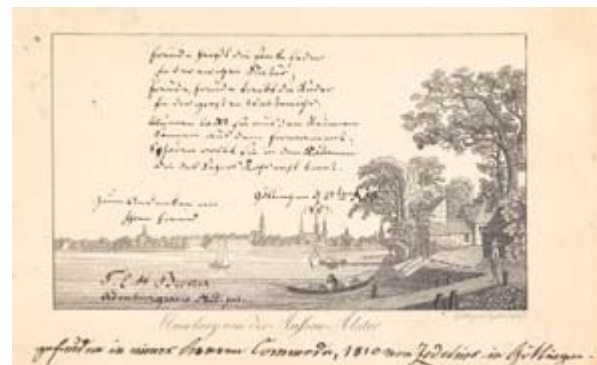 Freude heißt die starke Feder
In der ewigen Natur,
Freude, Freude treibt die Räder
In der großen Weltenuhr.
Blumen lockt sie aus den Keimen
Sonnen aus dem Firmament,
Sphären rollt sie in den Räumen
Die des Sehers Rohr nicht kennt.
Zum Andenken von
Göttingen d.
Freund
Hamburg von der Aussen-Alster
gefunden in einer Commode, 1810 von in Göttingen.